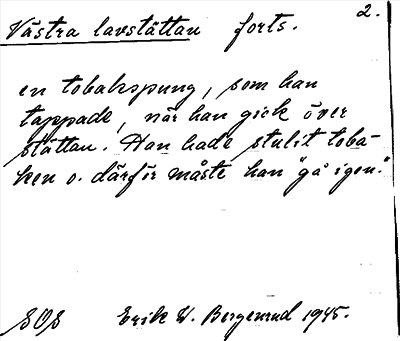 Västra lavstättan forts. 2.
en tobakspung, som han
tappade, när han gick över
stättan. Han hade stulit toba-
ken o. därför måste han "gå igen."
SOS Erik W. Bergenrud 1945.